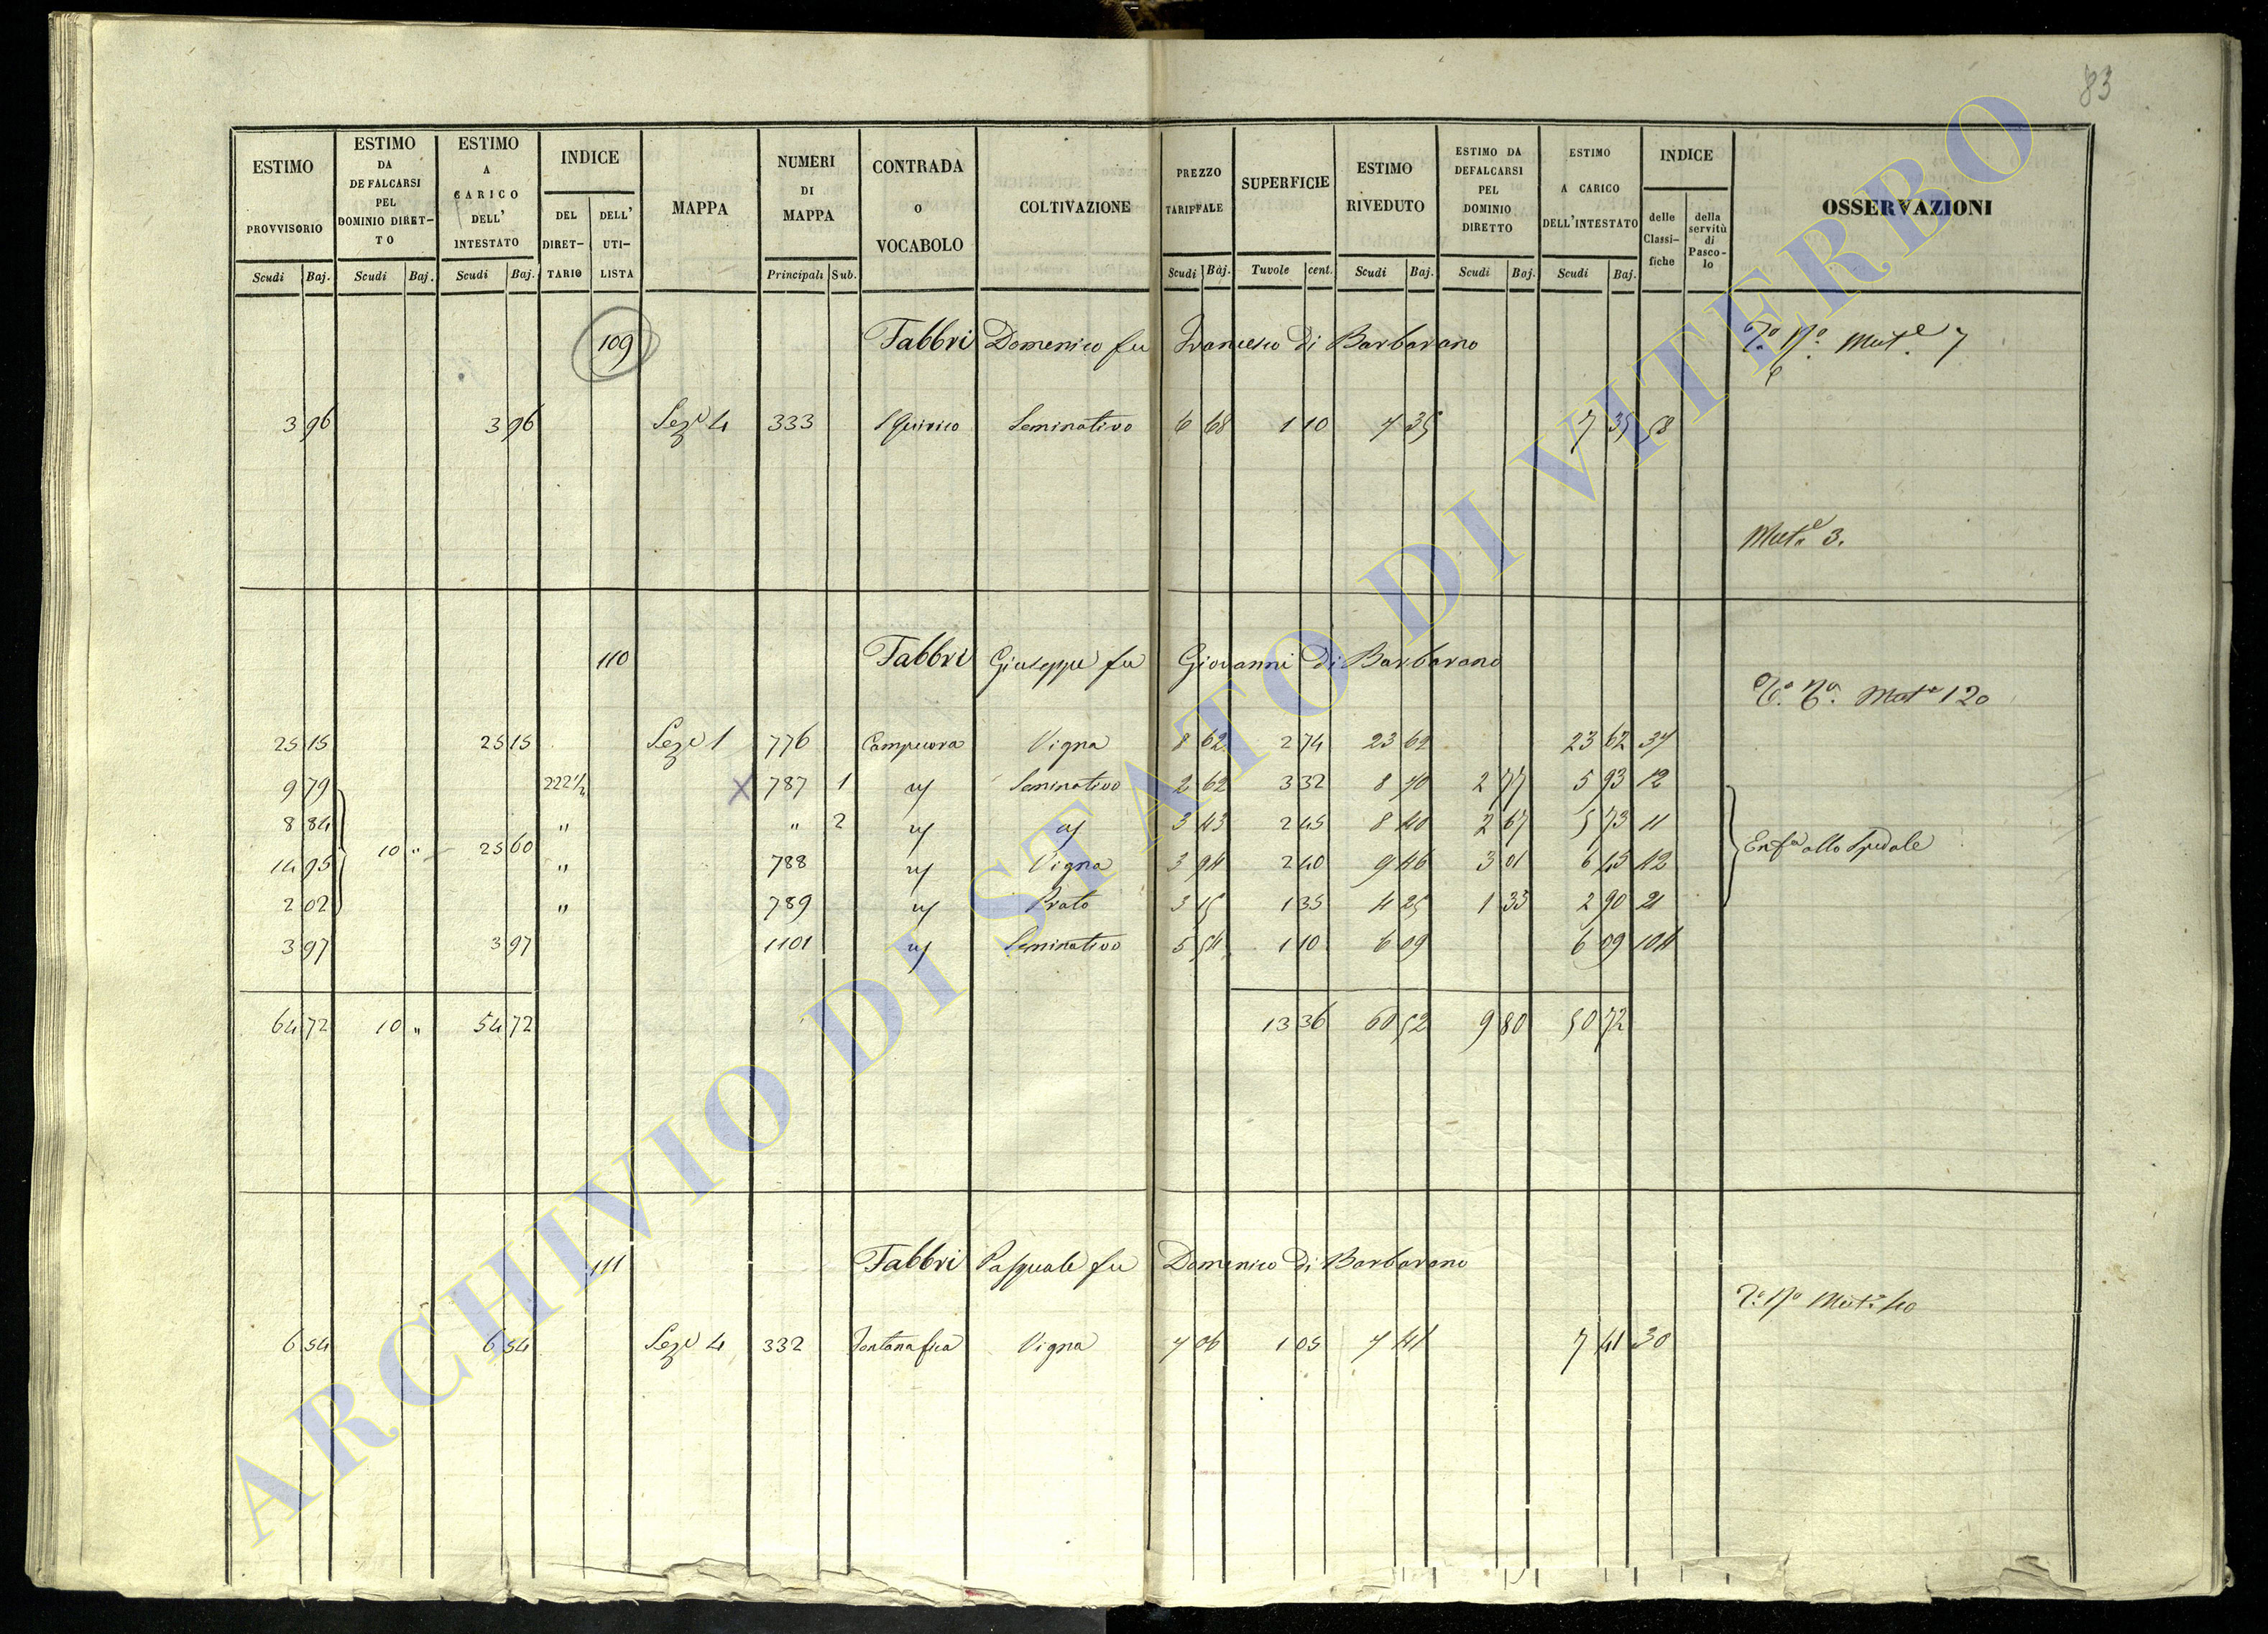 83
ESTIMO PROVVISORIO
ESTIMO DA DEFALCARSI PEL DOMINIO DIRETTO
ESTIMO A CARICO DELL' INTESTATO
INDICE
DEL DIRETTARIO
DELL' UTILISTA
MAPPA
NUMERI DI MAPPA
CONTRADA O VOCABOLO
COLTIVAZIONE
PREZZO TARIFFALE
SUPERFICIE
ESTIMO RIVEDUTO
ESTIMO DA DEFALCARSI PEL DOMINIO DIRETTO
ESTIMO A CARICO DELL'INTESTATO
INDICE
delle Classifiche
della servitù di Pascolo
OSSERVAZIONI
Scudi Baj. Scudi Baj. Scudi Baj. Principali Sub. Scudi Baj. Tavole cent. Scudi Baj. Scudi Baj. Scudi Baj.
109 Fabbri Domenico fu Francesco di Barbarano
Mut.e 7
3 96 3 96 Sez.e 4 333 S Quirico Seminativo 6 68 1 10 7 35 7 35 58
Mut.e 3.
110 Fabbri Giuseppe fu Giovanni di Barbarano
Mut.e 120
25 15 25 15 Sez.e 1 776 Vigna 8 62 2 74 23 62 23 62 37
9 79 222 1/2 X 787 1 Seminativo 2 62 3 32 8 70 2 77 5 93 12
8 84 " " 2 3 43 2 45 8 40 2 67 5 73 11
10 " 25 60
14 95 " 788 Vigna 3 94 2 40 9 46 3 01 6 45 42
Enf.a allo Spedale
2 02 " 789 Prato 3 15 1 35 4 25 1 33 2 90 21
3 97 3 97 1101 Seminativo 5 54 1 10 6 09 6 09 104
64 72 10 " 54 72 13 36 60 52 9 80 50 72
111 Fabbri Pasquale fu Domenico di Barbarano
Mut.e 40
6 54 6 54 Sez.e 4 332 Fontanafica Vigna 7 06 1 05 7 41 7 41 30
ARCHIVIO DI STATO DI VITERBO